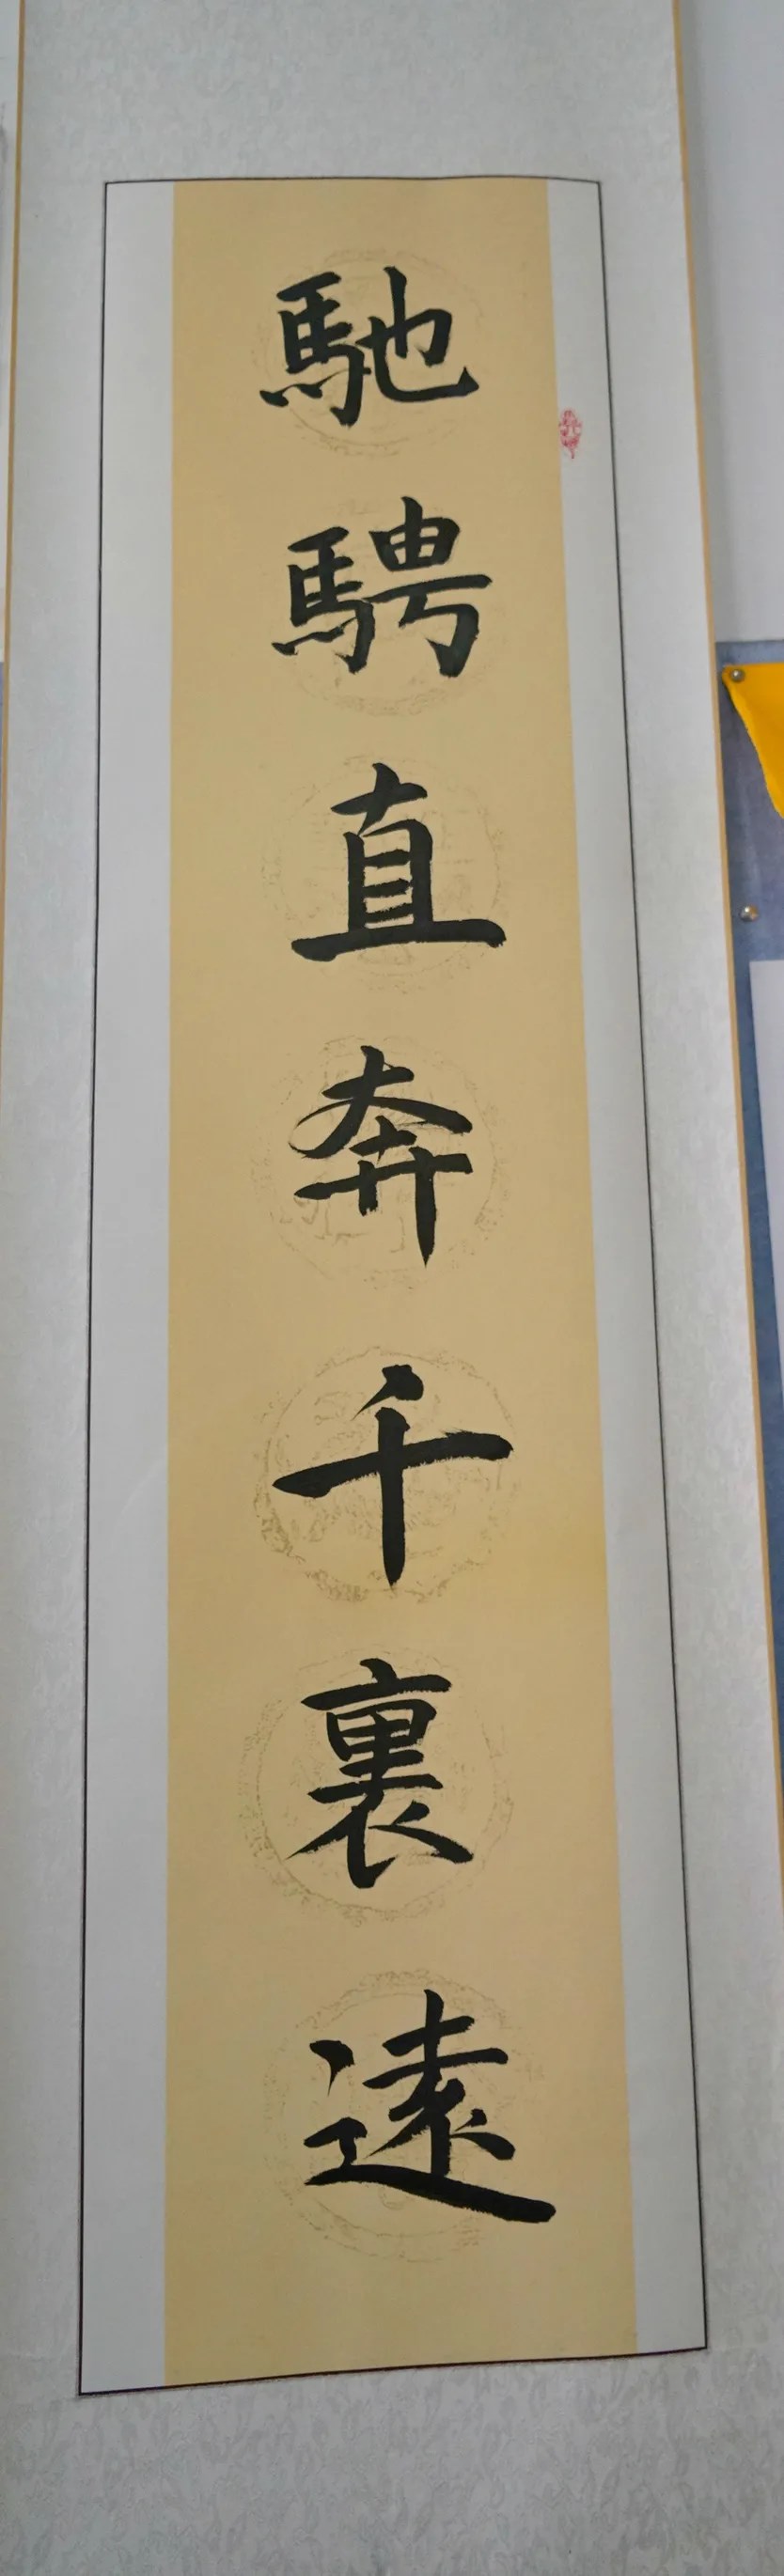 馳騁直奔千裏遠